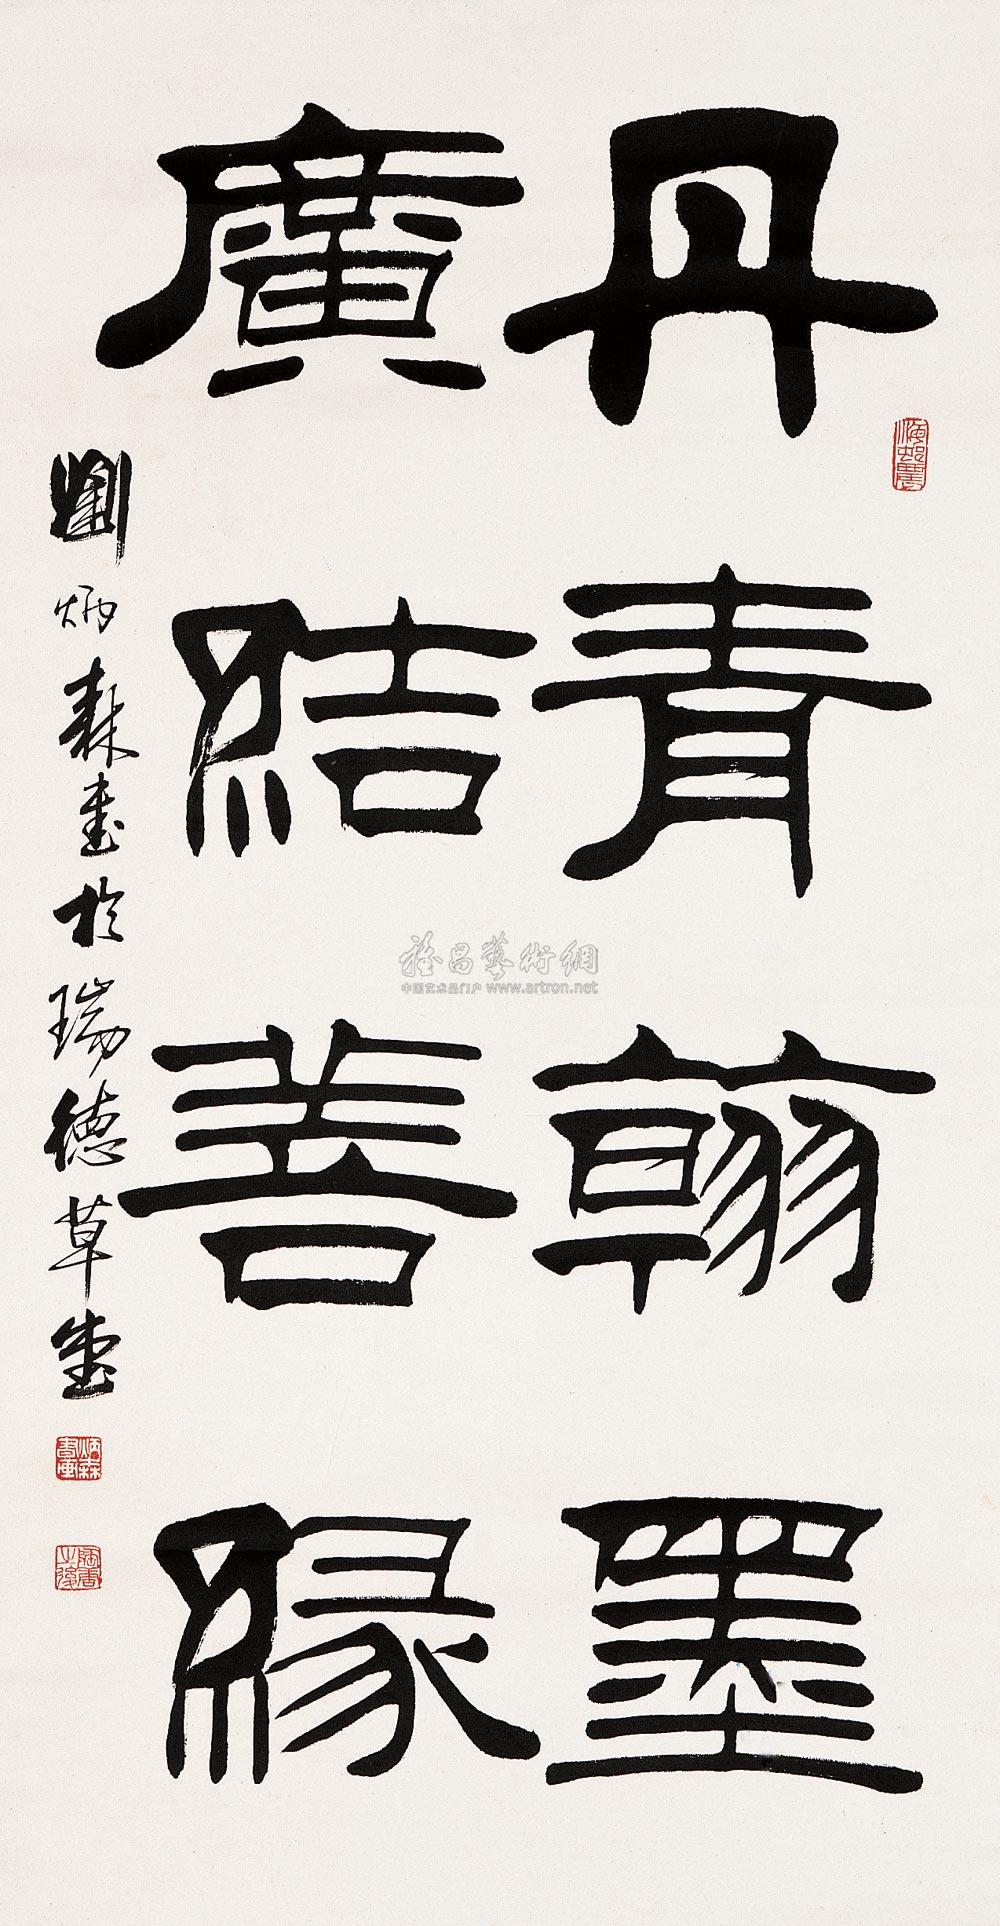 丹青翰墨
廣結善緣
劉炳森書於瑞德草堂
炳森書畫
雅昌藝術網
中国艺术品门户 www.artron.net